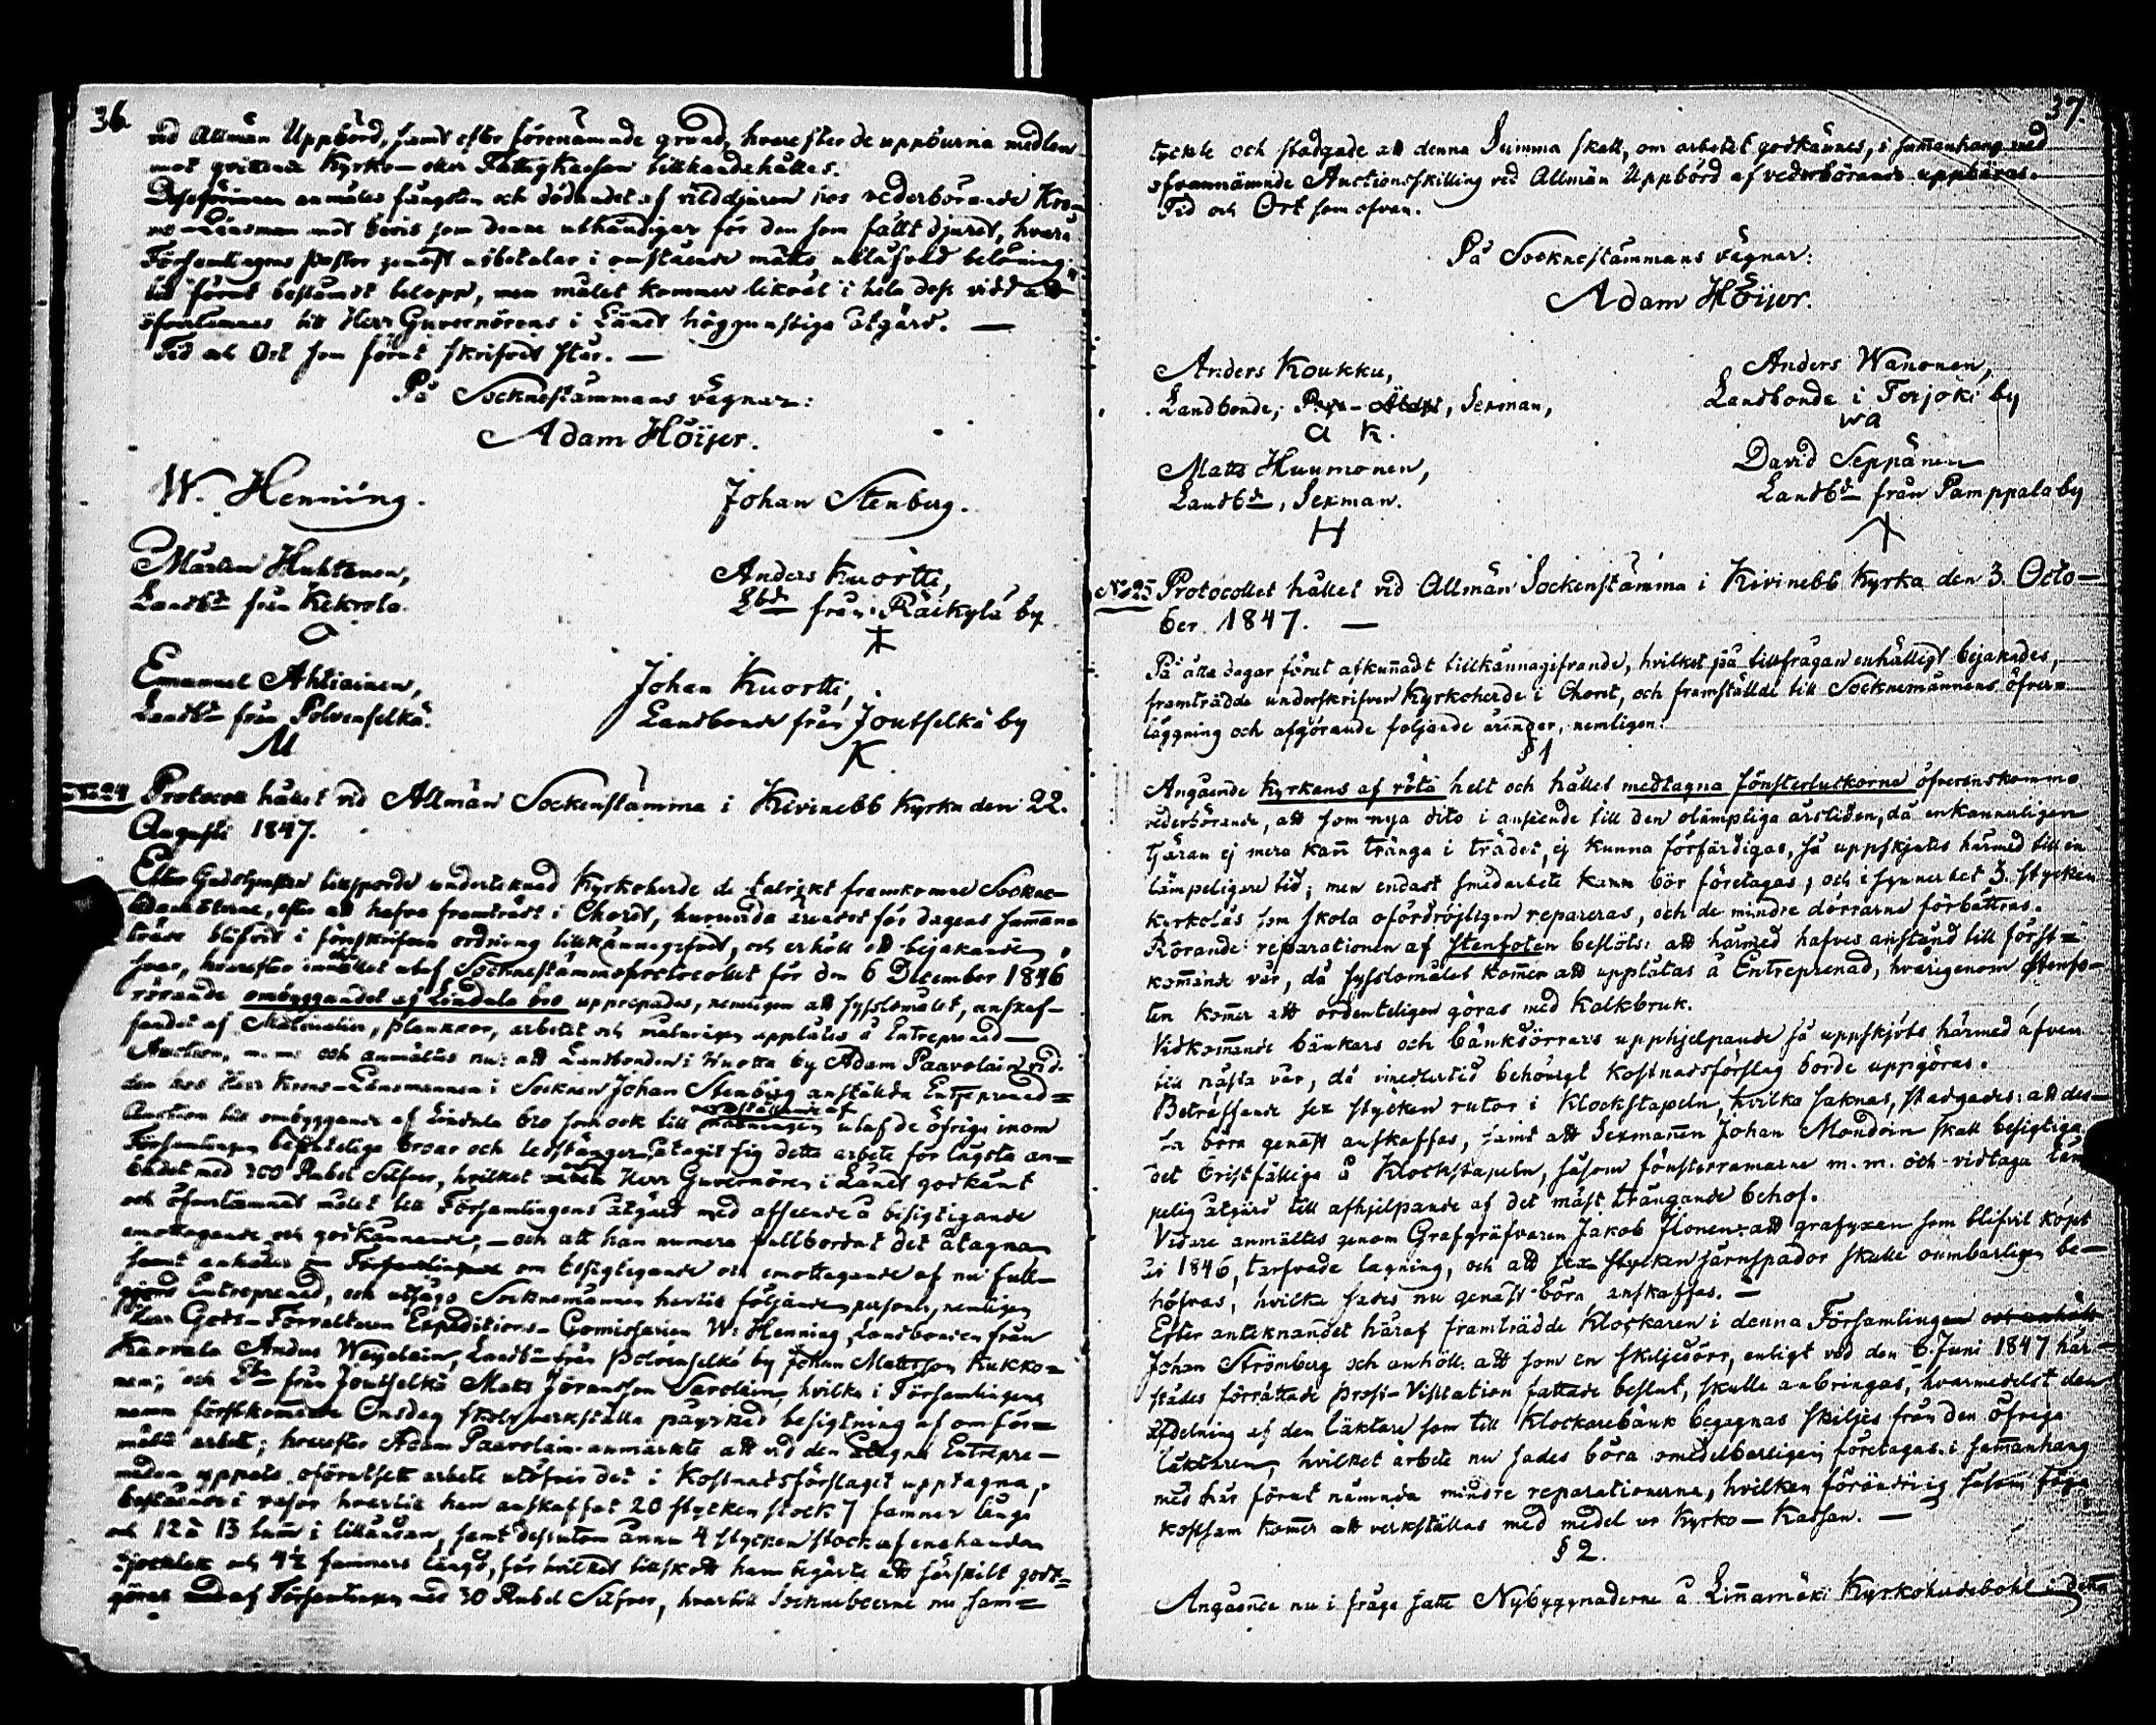 36.
vid Allmän Uppbörd, samt efter förenämnde grund, hvarefter de uppburna medlen
mot qvittens Kyrko- eller Fattigkassan tillhandahållas.
Dessförinnan anmäles fångsten och dödandet af rilddjuren hos vederbörande Kro-
no-Länsman mot bevis som denne uthändigar för den som fällt djuret, hvars
Församlingens Pastor genast utbetalar i omstående måtto utlofvad belöning
till förut bestämdt belopp, men målet kommer likväl i hela dess vidd att
öfverlemnas till Herr Guvernörens i Länet höggunstiga åtgärd. —
Tid och Ort som förut skrifvet står. —
På Socknestämmans vägnar:
Adam Höijer.
W. Henning.
Johan Stenberg.
Mårten Huhtanen,
Landbde från Kekrola.
O
Anders Kuortti,
Lbde från Räikylä by
Emanuel Ahtiainen,
Landbde från Polvenselkä.
M
Johan Kuortti,
Landbonde från Joutselkä by
K
No 24 Protocoll hållet vid Allmän Sockenstämma i Kivinebb Kyrka den 22.
Augusti 1847.
Efter Gudstjensten tillsporde undertecknad Kyrkoherde de talrikt framkomne Sockne-
ledamöterne, efter att hafva framträdt i Choret, huruvida ärendet för dagens samman-
träde blifvit i föreskrifven ordning tillkännagifvet, och erhöll ett bejakande
svar, hvarefter innehållet utaf Socknestämmoprotocollet för den 6 December 1846
rörande ombyggandet af Lindula bro upprepades, nemligen att sysslomålet, anskaf-
fandet af Materialier, plankor, arbetet och målningen upplätes å Entreprenad-
Auction, m.m. och anmältes nu: att Landbonden i Wuotta by Adam Paavolain vid
den hos Herr Krono-Länsmannen i Socknen Johan Stenberg anställda Entreprenad-
Auction till ombyggande af Lindula bro som ock till målningen utaf de öfriga inom
Församlingen befinteliga broar och ledstänger, åtagit sig detta arbete för lägsta an-
budet med 300 Rubel Silfver, hvilket anbud Herr Guvernören i Länet godkänt
och öfverlämnat målet till Församlingens åtgärd med afseende å besigtigande
emottagande och godkännande, — och att han numera fullbordat det åtagna
samt anhåller om besigtigande och emottagande af nu full-
gjord Entreprenad, och utsågs Socknemännen hertill följande personer, nemligen
Herr Gods-Förvaltaren Expeditions-Comissarien W: Henning, Landbonden från
Karvala Anders Weijelain, Landbde från Polvenselkä by Johan Mattsson Kukko-
nen; och Lbde från Joutselkä Mats Jöransson Savolain, hvilka i Församlingens
namn förstkommande Onsdag skola verkställa påyrkad besigtning af omför-
mälte arbete; hvarefter Adam Paavolain anmärkte att vid den åtagna Entrepre-
naden uppstå oförutsett arbete utöfver det i Kostnadsförslaget upptagna,
bestående i resor hvartill han anskaffat 20 stycken stock 7 famnar långa
och 12 à 13 tum i lilländan, samt dessutom ännu 4 stycken stock af enahanda
tjocklek och 4½ famnars längd, för hvilket tillskott han begärte att särskilt godt-
göras utaf Församlingen med 30 Rubel Silfver, hvartill Sockneboerne nu sam-
37.
tyckte och stadgade att denna Summa skall, om arbetet godkännes, i sammanhang med
ofvannämnde Auctionsskilling vid Allmän Uppbörd af vederbörande uppbäras.
Tid och Ort som ofvan.
På Socknestämmans vägnar:
Adam Höijer.
Anders Koukku,
Landbonde, Sexman,
A K.
Anders Wanonen,
Landbonde i Torjoki by
WA
Matts Huumonen,
Landbde, Sexman.
H
David Seppänen
Landbde från Pamppala by
No 25 Protocollet hållet vid Allmän Sockenstämma i Kivinebb Kyrka den 3. Octo-
ber 1847. —
På åtta dagar förut afkunnadt tillkännagifvande, hvilket på tillfrågan enhälligt bejakades,
framträdde underskrifven Kyrkoherde i Choret, och framställde till Socknemännens öfver-
läggning och afgörande följande ärender, nemligen:
§ 1
Angående Kyrkans af röta helt och hållet medtagna fönsterluckorne öfverenskommo
vederbörande, att som nya dito i anseende till den olämpliga årstiden, då enkannerligen
tjäran ej mera kan tränga i trädet, ej kunna förfärdigas, så uppskjutes härmed till en
lämpeligare tid; men endast smedarbete kann bör företagas, och i synnerhet 3. stycken
kyrkolås som skola ofördröjligen repareras, och de mindre dörrarne förbättras.
Rörande reparationen af stenfoten beslöts: att härmed hafves anstånd till först-
kommande vår, då sysslomålet kommer att upplåtas å Entreprenad, hvarigenom stenfo-
ten kommer att ordenteligen göras med Kalkbruk.
Vidkommande bänkars och bänkdörrars upphjelpande så uppskjöts härmed äfven
till nästa vår, då imedlertid behörigt Kostnadsförslag borde uppgöras.
Beträffande sex stycken rutor i Klockstapeln, hvilka saknas, stadgades: att des-
sa böra genast anskaffas, samt att Sexmannen Johan Mondoin skall besigtiga
det bristfälliga å Klockstapeln, såsom fönsterramarne m.m. och vidtaga läm-
pelig åtgärd till afhjelpande af det mäst trängande behof.
Vidare anmältes genom Grafgräfvaren Jakob Ilonen: att grafyxen som blifvit köpt
år 1846, tarfvade lagning, och att sex stycken järnspador skulle oumbärligen be-
höfvas, hvilka sades nu genast böra anskaffas. —
Efter antecknandet häraf framträdde Klockaren i denna Församlingen
Johan Strömberg och anhöll: att som en skiljedörr, enligt vid den 6. Juni 1847 här-
städes förrättade Prost-Visitation fattade beslut, skulle anbringas, hvarmedelst den
afdelning af den läktare som till Klockarebänk begagnas skiljes från den öfriga
läktaren, hvilket arbete nu sades böra omedelbarligen företagas i sammanhang
med här förut nämnda mindre reparationerna, hvilken förändring såsom föga
kostsam kommer att verkställas med medel ur Kyrko-Kassan. —
§ 2.
Angående nu i fråga satte Nybyggnaderne å Linnamäki Kyrkoherdebohl